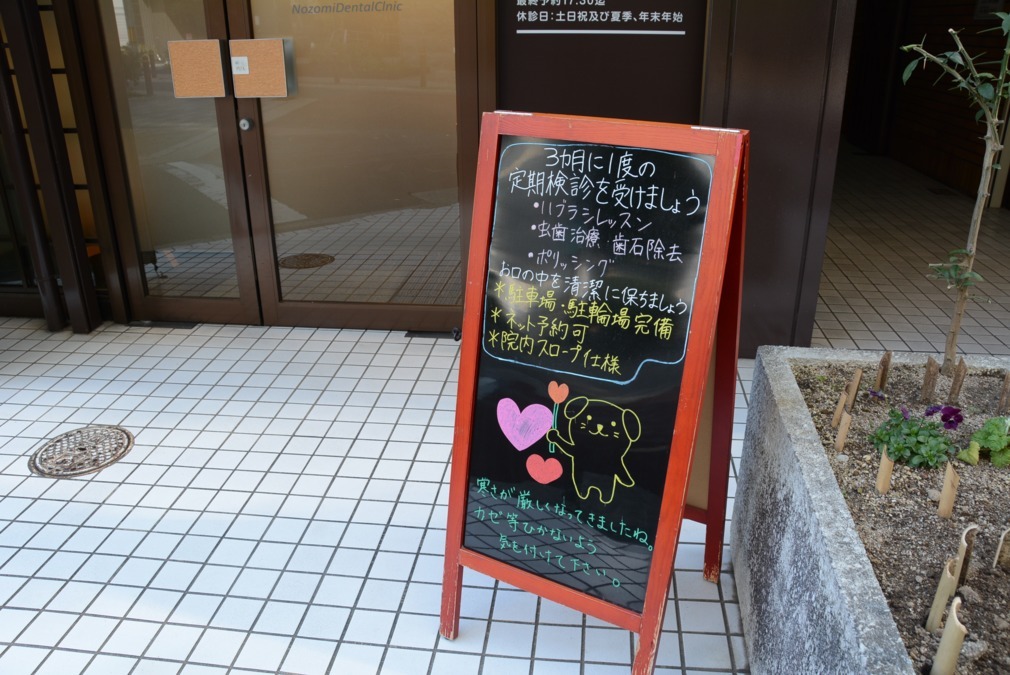 NozomiDentalClinic
最終予約17:30迄
休診日：土日祝及び夏季、年末年始
3カ月に1度の
定期検診を受けましょう
・ハブラシレッスン
・虫歯治療・歯石除去
・ポリッシング
お口の中を清潔に保ちましょう
＊駐車場・駐輪場完備
＊ネット予約可
＊院内スロープ仕様
寒さが厳しくなってきましたね。
カゼ等ひかないよう
気を付けて下さい。